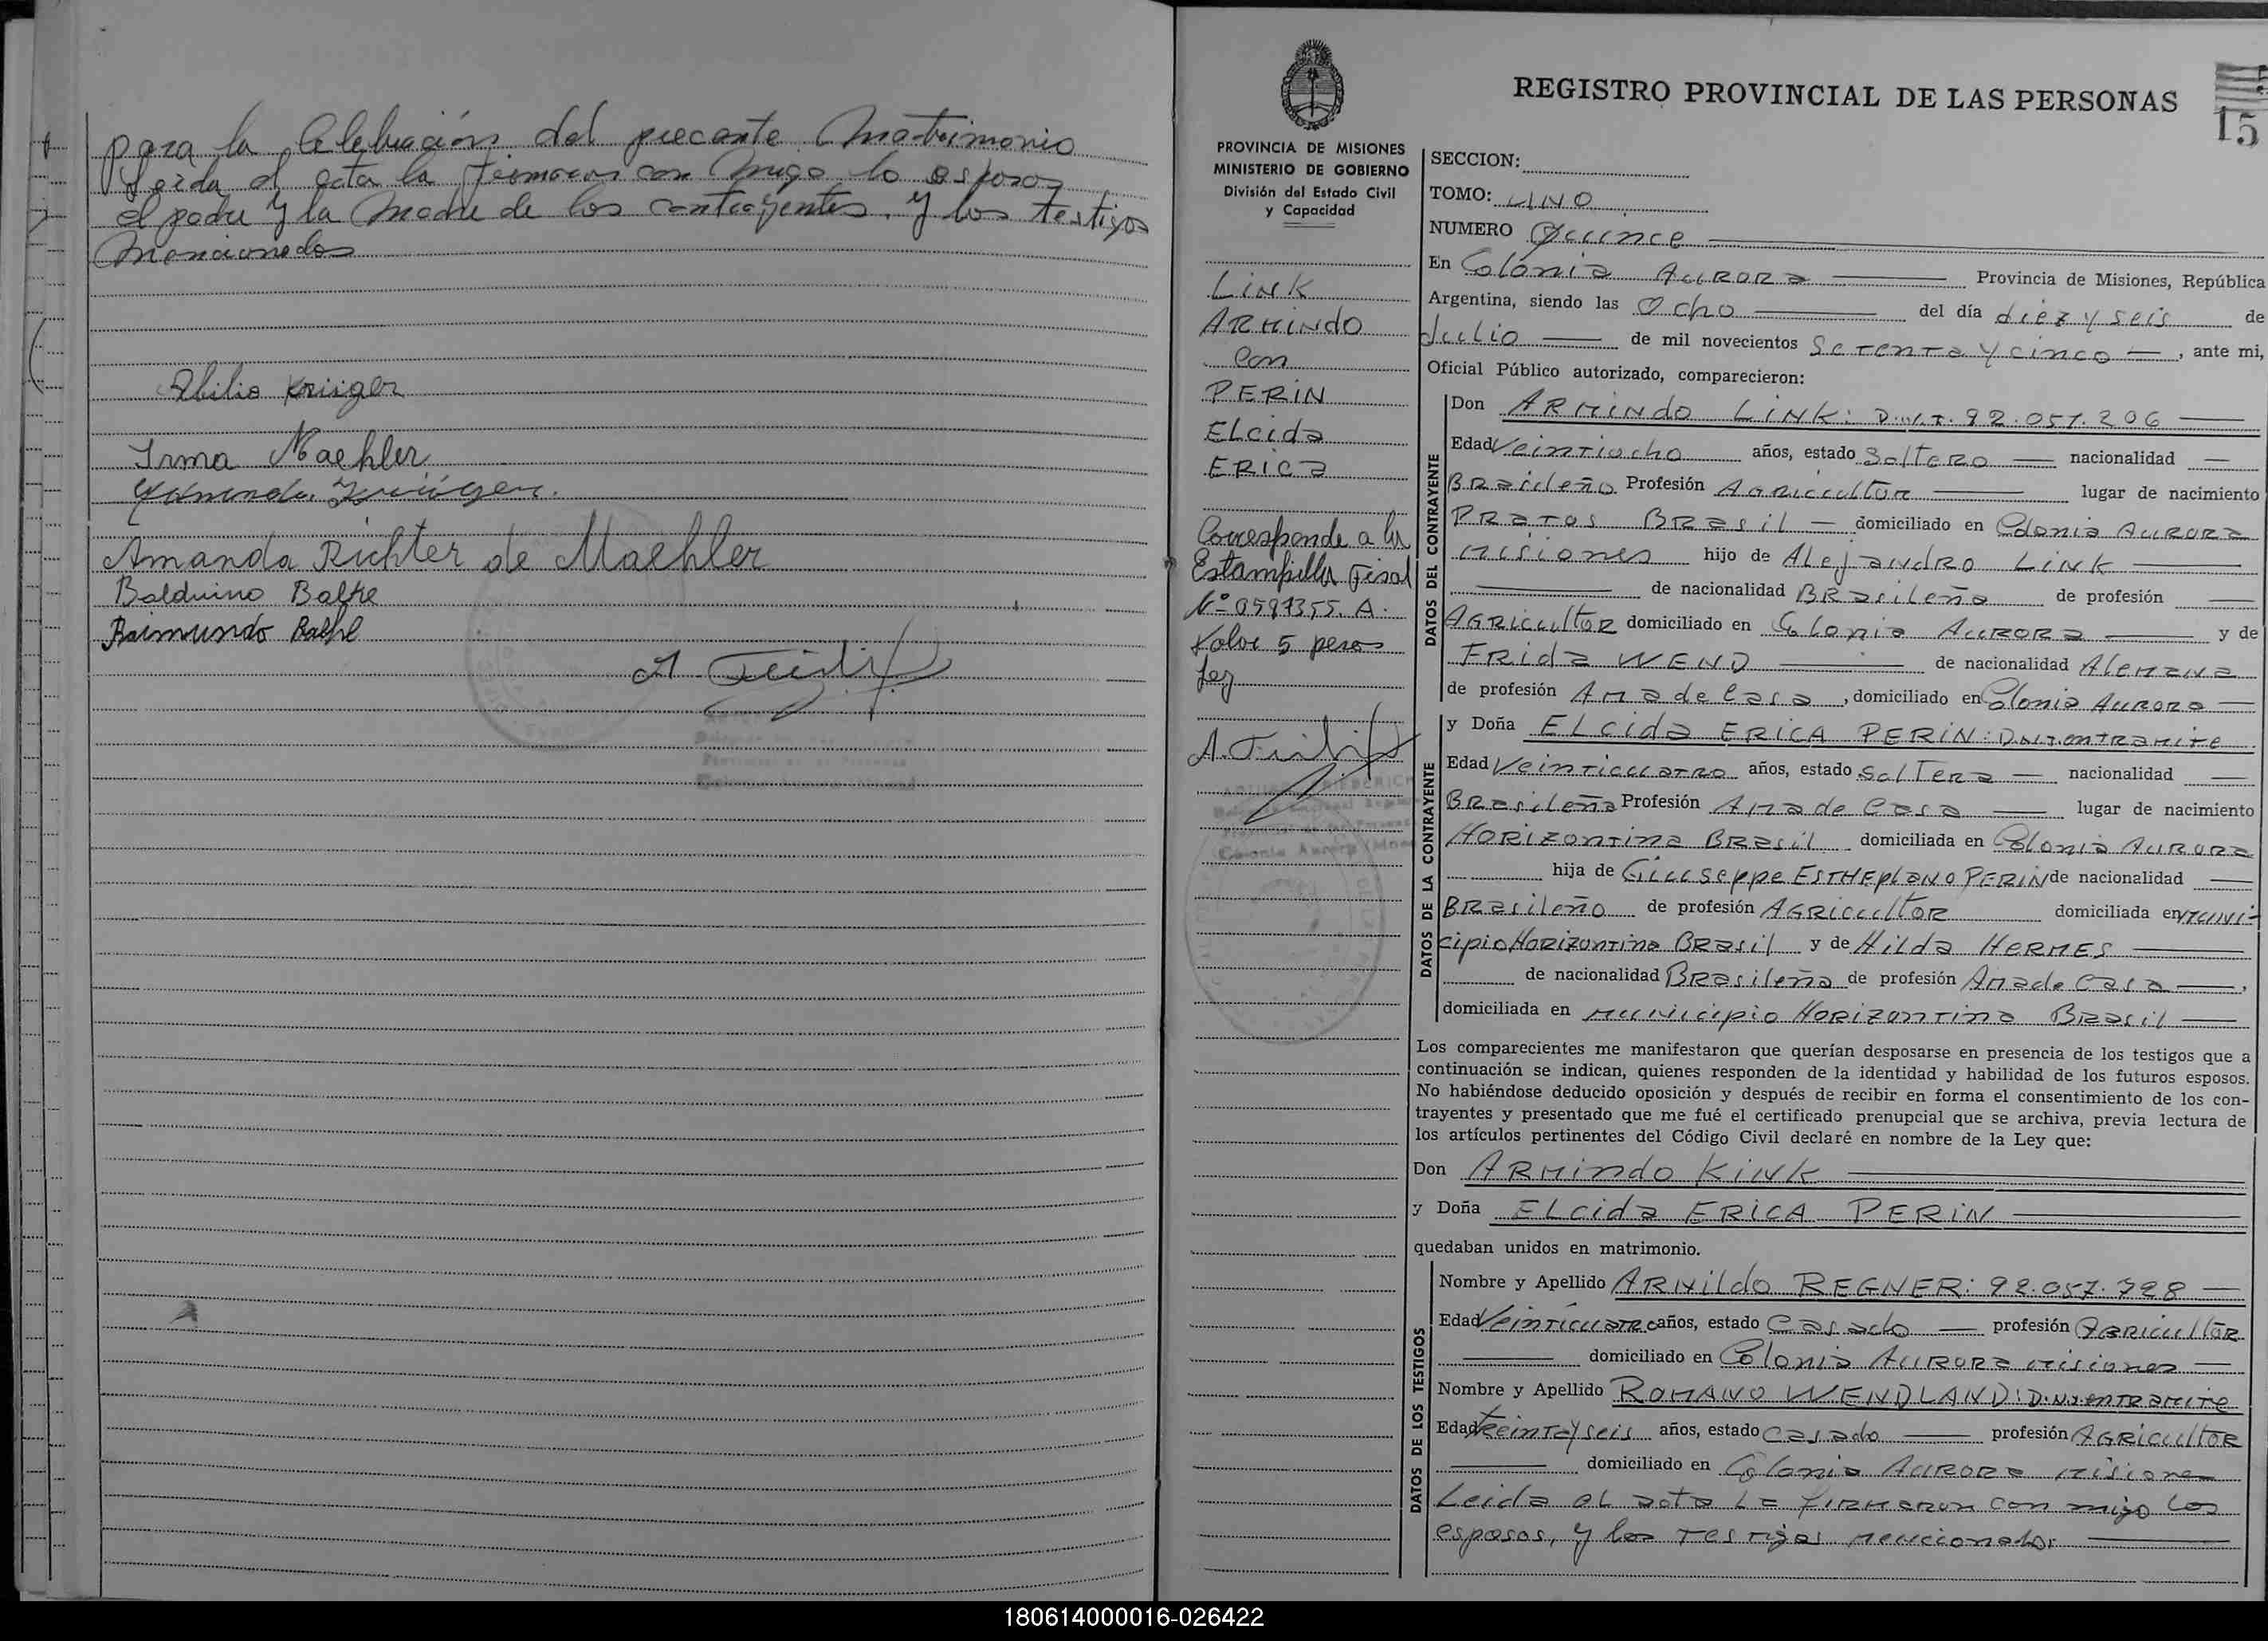 para la Celebración del precante Matrimonio
Leida el acta la firmaron con migo lo esposos
el padre y la Madre de los contrayentes. y los testigos
Mencionados
Abilio Krüger
Irma Maehler
Amanda Richter de Maehler
Balduino Balke
Raimundo
PROVINCIA DE MISIONES
MINISTERIO DE GOBIERNO
División del Estado Civil
y Capacidad
Link
ARMINDO
Con
PERIN
ELcida
ERICA
Corresponde a la
Estampilla Fiscal
Nº 0591355. A.
Valor 5 pesos
Ley
REGISTRO PROVINCIAL DE LAS PERSONAS
15
SECCION:
TOMO: UNO
NUMERO Quince
En Colonia AURORA Provincia de Misiones, República
Argentina, siendo las Ocho del día diez y seis de
Julio de mil novecientos Setenta y cinco, ante mi,
Oficial Público autorizado, comparecieron:
DATOS DEL CONTRAYENTE
Don ARMINdo LINK: D.N.I. 92.051.206
Edad Veintiocho años, estado SolteRO nacionalidad
BRasileño Profesión AgRicultoR lugar de nacimiento
PRatos BRasil domiciliado en Colonia AURORA
Misiones hijo de AlejandRO LINK
de nacionalidad BRasileña de profesión
AGRicultoR domiciliado en Colonia AURORA y de
FRida WEND de nacionalidad AleMANA
de profesión Ama de Casa, domiciliado en Colonia AURORA
DATOS DE LA CONTRAYENTE
y Doña ELcida ERICA PERIN: D.N.I. en tRAMite
Edad VeinticuatRO años, estado SolTeRa nacionalidad
BRasileña Profesión Ama de Casa lugar de nacimiento
HORizontina BRasil domiciliada en Colonia AURORA
hija de Giusseppe ESTHEplaNO PERIN de nacionalidad
BRasileño de profesión AGRicultoR domiciliada en Muni-
cipio HORizontina BRasil y de Hilda HeRMES
de nacionalidad BRasileña de profesión Ama de Casa,
domiciliada en Municipio HORizontina BRasil
Los comparecientes me manifestaron que querían desposarse en presencia de los testigos que a
continuación se indican, quienes responden de la identidad y habilidad de los futuros esposos.
No habiéndose deducido oposición y después de recibir en forma el consentimiento de los con-
trayentes y presentado que me fué el certificado prenupcial que se archiva, previa lectura de
los artículos pertinentes del Código Civil declaré en nombre de la Ley que:
Don ARMindo KINK
y Doña ELcida ERICA PERIN
quedaban unidos en matrimonio.
DATOS DE LOS TESTIGOS
Nombre y Apellido ARNildo REGNER: 92.057.728
Edad VeinticuatRo años, estado Casado profesión AGRicultoR
domiciliado en Colonia AURORA Misiones
Nombre y Apellido ROMANO WENDLAND: D.N.I. en tRAMite
Edad tReinta y seis años, estado Casado profesión AGRicultoR
domiciliado en Colonia AURORA Misiones
Leida el acta la fiRMaRon con migo los
esposos, y los testigos mencionados
180614000016-026422